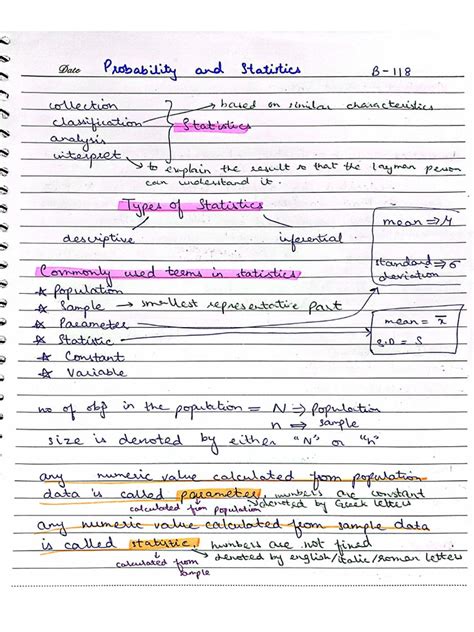 Date Probability and Statistics B-118
collection
classification → based on similar characteristics
analysis Statistics
interpret → to explain the result so that the layman person
can understand it.
Types of Statistics
descriptive inferential
mean ⇒ μ
standard ⇒ σ
deviation
Commonly used terms in statistics
☆ Population
☆ Sample → smallest representative part
☆ Parameter
☆ Statistic
☆ Constant
☆ Variable
mean = x̅
S.D = S
no of obj in the population = N ⇒ Population
n ⇒ sample
size is denoted by either "N" or "n"
any numeric value calculated from population
data is called parameter, numbers are constant
calculated from population → denoted by Greek letters
any numeric value calculated from sample data
is called statistic. numbers are not fixed
calculated from → denoted by english/italic/roman letters
sample